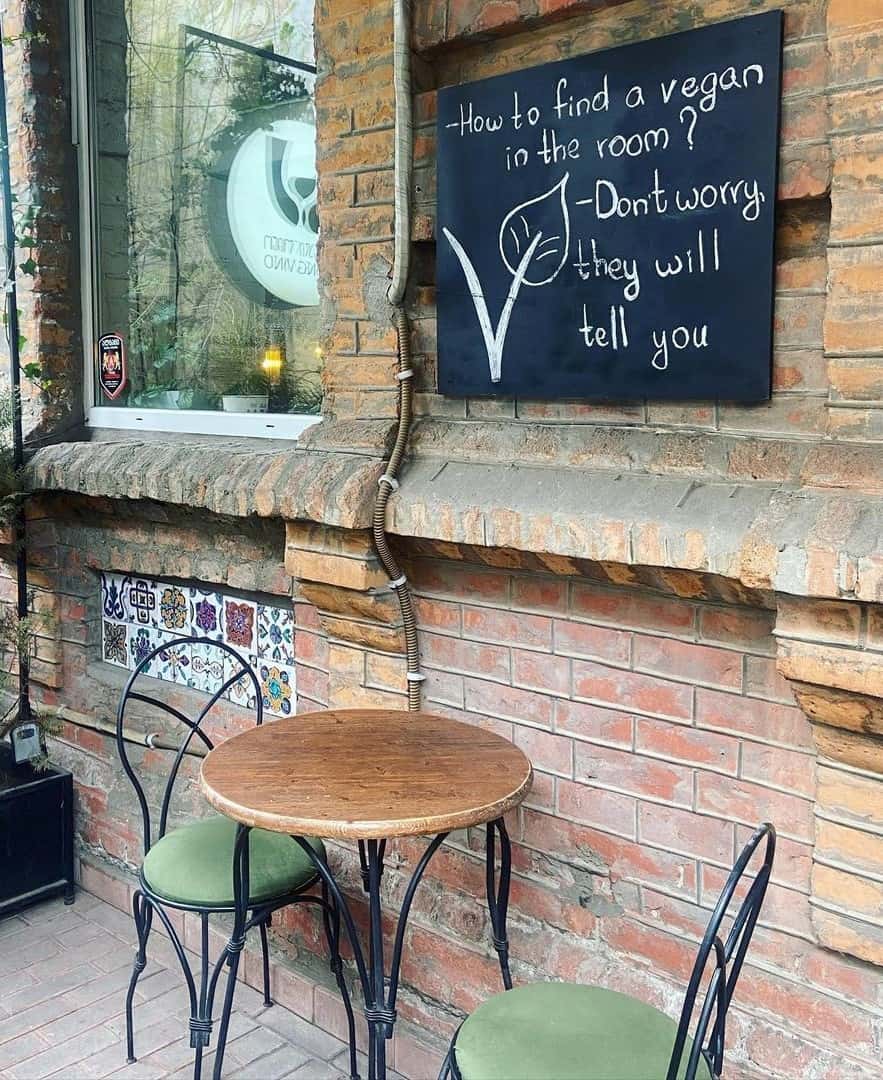 -How to find a vegan
in the room?
-Don't worry,
they will
tell you